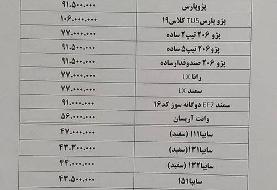 پژوپارس ۹۱.۵۰۰.۰۰۰
پژو پارس TU5 کلاس۱۹ ۱۰۶.۰۰۰.۰۰۰
پژو ۲۰۶ تیپ۲ ساده ۷۷.۰۰۰.۰۰۰
پژو ۲۰۶ تیپ۵ ساده ۹۱.۵۰۰.۰۰۰
پژو ۲۰۶ صندوقدارساده ۹۱.۵۰۰.۰۰۰
رانا LX ۷۷.۰۰۰.۰۰۰
سمند LX ۷۷.۰۰۰.۰۰۰
سمند EF7 دوگانه سوز کد۱۶ ۹۱.۰۰۰.۰۰۰
وانت آریسان ۵۶.۰۰۰.۰۰۰
سایپا۱۱۱ (سفید) ۴۷.۰۰۰.۰۰۰
سایپا۱۳۱ (سفید) ۴۳.۳۰۰.۰۰۰
سایپا۱۳۲ (سفید) ۴۴.۰۰۰.۰۰۰
سایپا۱۵۱ ۴۳.۵۰۰.۰۰۰